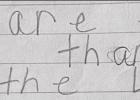 are
tha
the